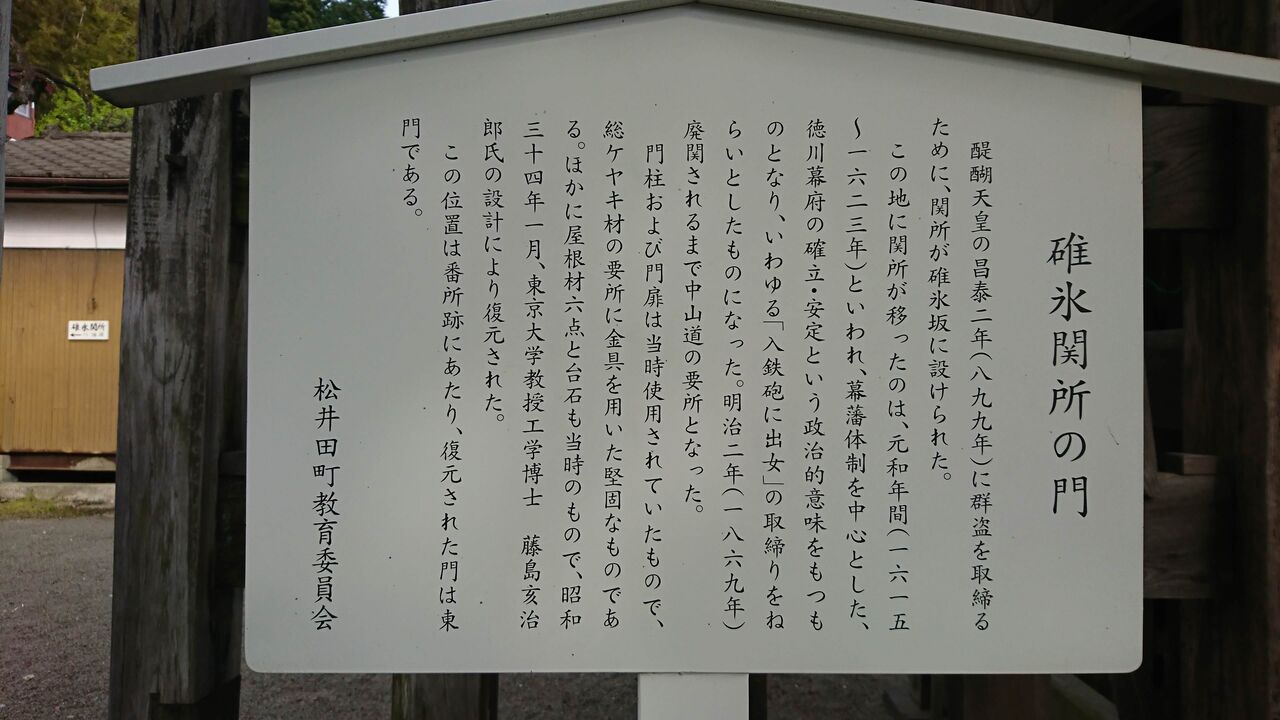 碓氷関所の門
醍醐天皇の昌泰二年(八九九年)に群盗を取締る
ために、関所が碓氷坂に設けられた。
この地に関所が移ったのは、元和年間(一六一五
～一六二三年)といわれ、幕藩体制を中心とした、
徳川幕府の確立・安定という政治的意味をもつも
のとなり、いわゆる「入鉄砲に出女」の取締りをね
らいとしたものになった。明治二年(一八六九年)
廃関されるまで中山道の要所となった。
門柱および門扉は当時使用されていたもので、
総ケヤキ材の要所に金具を用いた堅固なものであ
る。ほかに屋根材六点と台石も当時のもので、昭和
三十四年一月、東京大学教授工学博士　藤島亥治
郎氏の設計により復元された。
この位置は番所跡にあたり、復元された門は東
門である。
松井田町教育委員会
碓氷関所